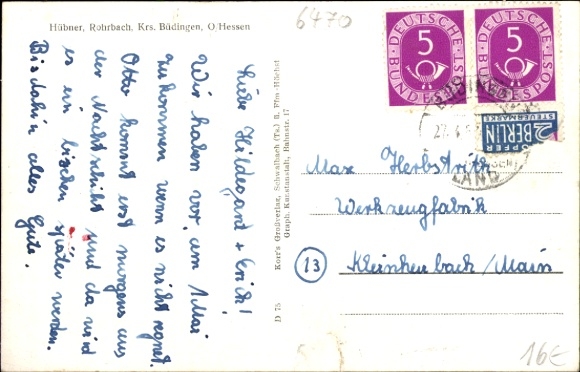 Hübner, Rohrbach, Krs. Büdingen, O/Hessen
6470
Liebe Hildegard + Erich!
Wir haben vor, am 1. Mai
zu kommen wenn es nicht regnet.
Otto kommt erst morgens aus
der Nachtschicht und da wird
es ein bischen später werden.
Bis dahin alles
Gute.
Korr's Großverlag, Schwalbach (Ts.) ü. Ffm.-Höchst
Graph. Kunstanstalt, Bahnstr. 17
D 75
DEUTSCHE
5
BUNDESPOST
DEUTSCHE
5
BUNDESPOST
27.4.5
LAND
2 BERLIN
STEUERMARKE
Max Herbstritt
Werkzeugfabrik
13
Kleinheubach/Main
16€